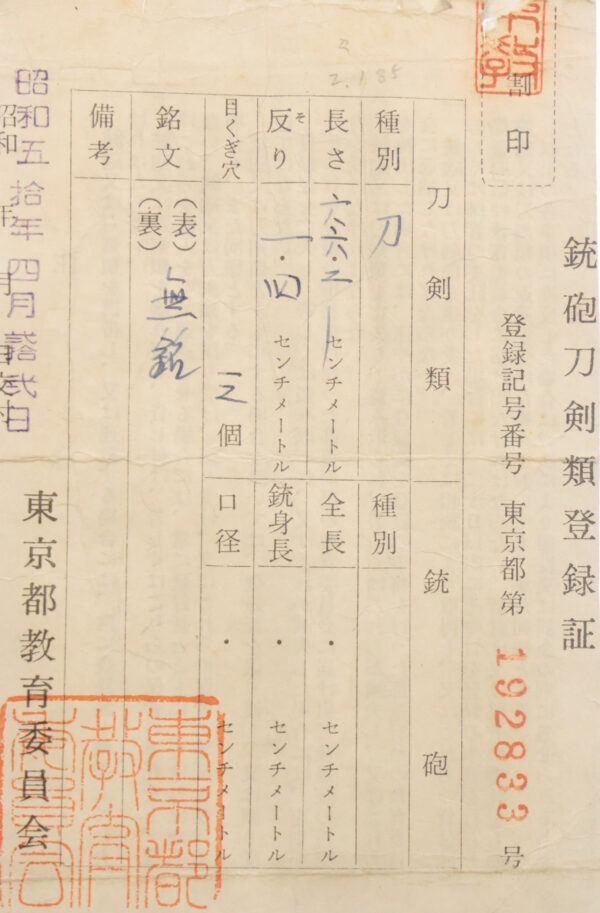 銃砲刀剣類登録証
割印
登録記号番号 東京都第 192833 号
刀剣類
銃砲
種別 刀
種別
長さ 六六.二 センチメートル
全長 ・ センチメートル
反り そ 一.四 センチメートル
銃身長 ・ センチメートル
目くぎ穴 三個
口径 ・ センチメートル
銘文 (表) 無銘
(裏)
備考
昭和五拾年四月拾弐日
昭和 年 月 日交付
東京都教育委員会
東京都教育委員会
2.1.85